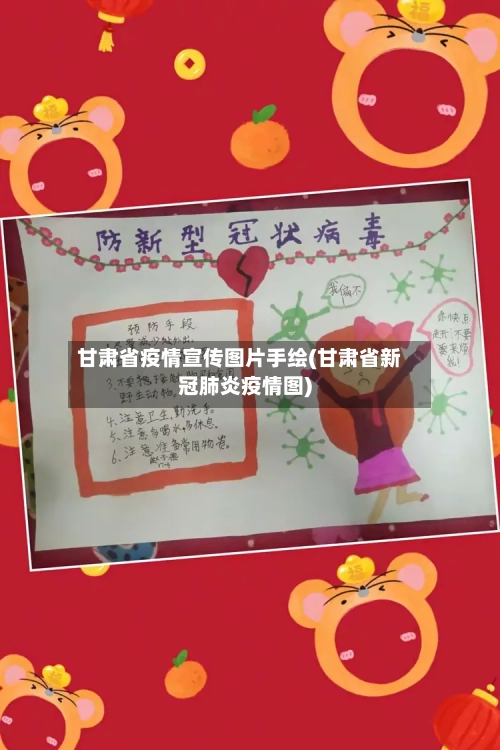 福
福
防新型冠状病毒
我偏不
你快点
走开!不要
预防手段
甘肃省疫情宣传图片手绘(甘肃省新
冠肺炎疫情图)
野生动物。
4.注意卫生,勤洗手。
5、注意多喝水,多休息。
6、注意准备常用物资。
福
福